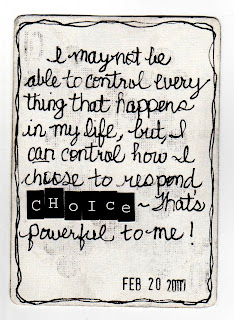 I may not be
able to control every
thing that happens
in my life, but, I
can control how I
choose to respond
CHOICe ~ That's
powerful to me!
FEB 20 2011